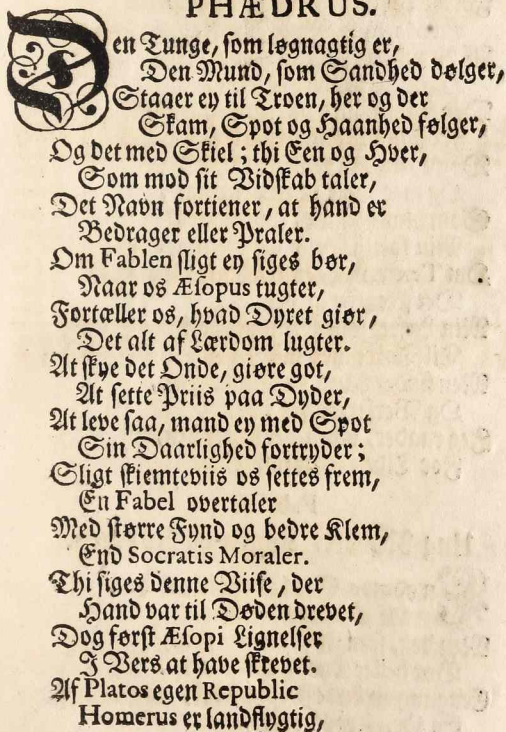 PHÆDRUS.
Den Tunge, som løgnagtig er,
Den Mund, som Sandhed dølger,
Staaer ey til Troen, her og der
Skam, Spot og Haanhed følger,
Og det med Skiel; thi Een og Hver,
Som mod sit Vidskab taler,
Det Navn fortiener, at hand er
Bedrager eller Praler.
Om Fablen sligt ey siges bør,
Naar os Æsopus tugter,
Fortæller os, hvad Dyret giør,
Det alt af Lærdom lugter.
At skye det Onde, giøre got,
At sette Priis paa Dyder,
At leve saa, mand ey med Spot
Sin Daarlighed fortryder;
Sligt skiemteviis os settes frem,
En Fabel overtaler
Med større Fynd og bedre Klem,
End Socratis Moraler.
Thi siges denne Viise, der
Hand var til Døden drevet,
Dog først Æsopi Lignelser
I Vers at have skrevet.
Af Platos egen Republic
Homerus er landflygtig,